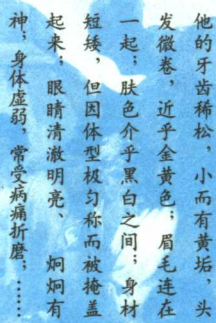 他的牙齿稀松，小而有黄垢，头
发微卷，近乎金黄色；眉毛连在
一起；肤色介乎黑白之间；身材
短矮，但因体型极匀称而被掩盖
起来；眼睛清澈明亮、炯炯有
神；身体虚弱，常受病痛折磨；……